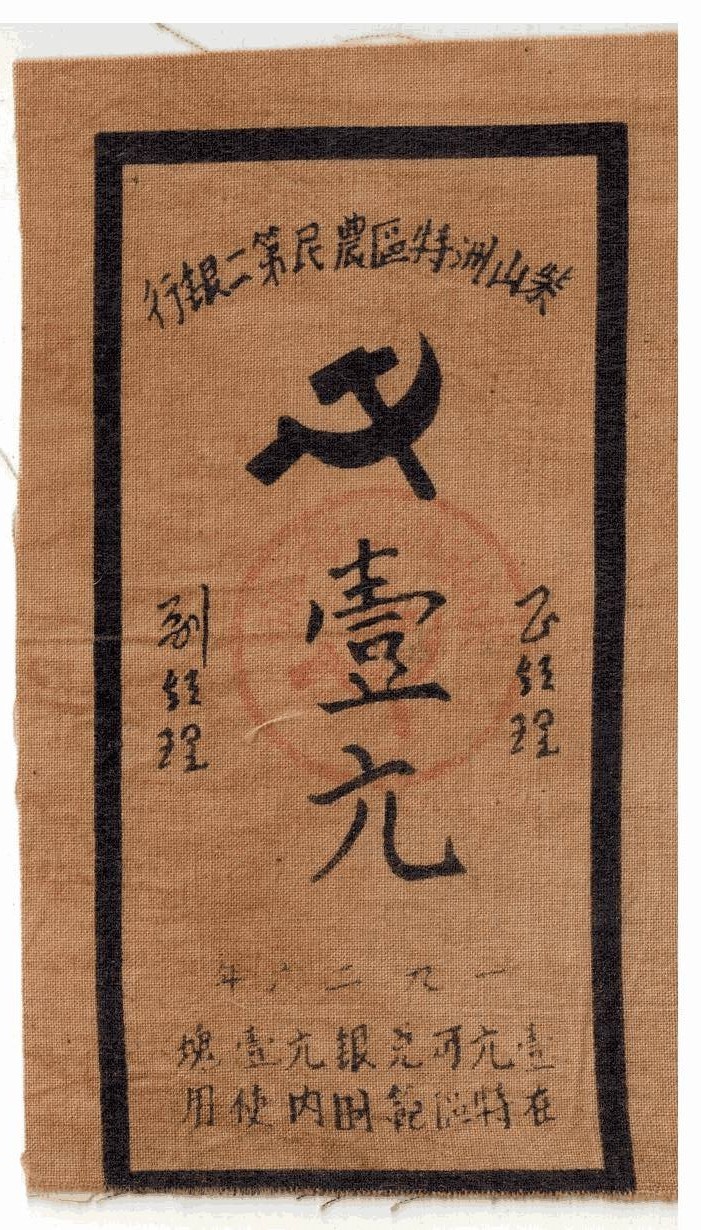 柴山洲特區農民第二銀行
正经理
壹元
副经理
一九二六年
壹元可兑銀元壹塊
在特區範囲内使用